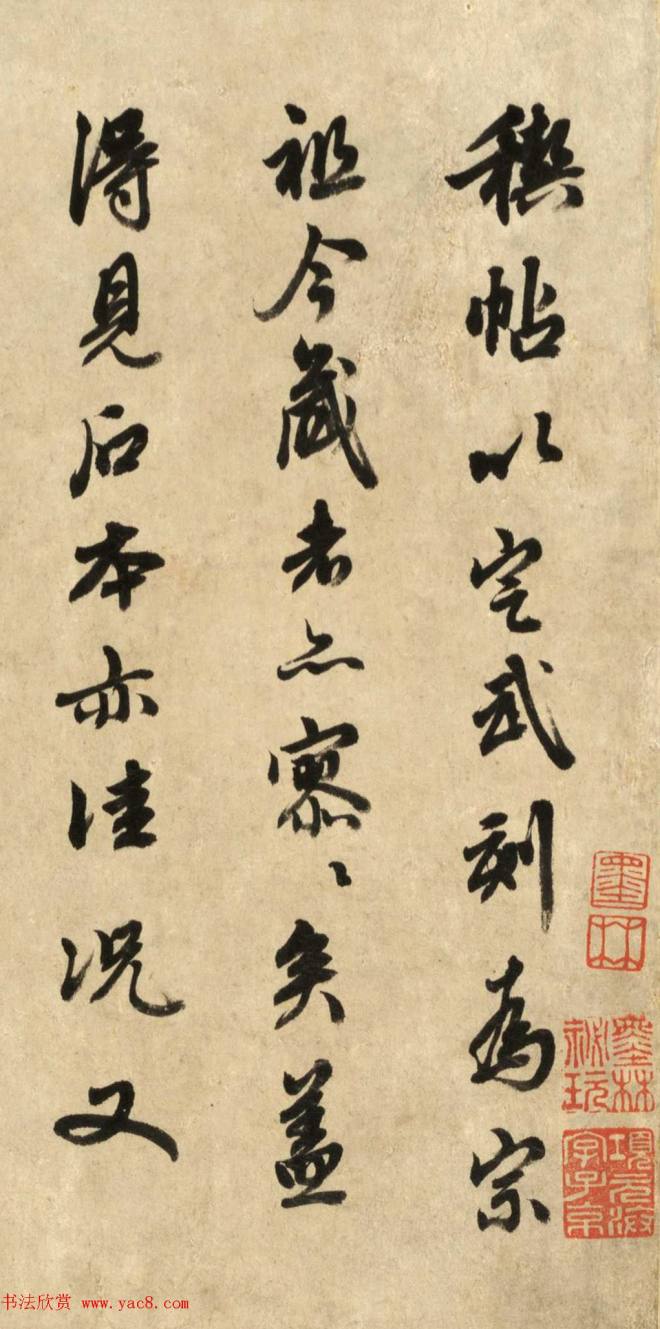 稧帖以定武刻為宗
祖今藏者亦寥〻矣蓋
得見石本亦佳况又
墨林
墨林祕玩
項元汴字子京
书法欣赏 www.yac8.com